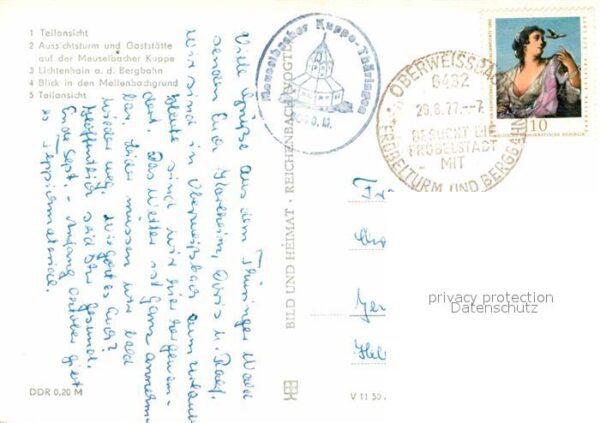 1 Teilansicht
2 Aussichtsturm und Gaststätte
auf der Meuselbacher Kuppe
3 Lichtenhain a. d. Bergbahn
4 Blick in den Mellenbachgrund
5 Teilansicht
Meuselbacher Kuppe-Thüringen
OBERWEISSBACH
6432
26.8.77.-7
BESUCHT DIE
FRÖBELSTADT
MIT
FRÖBELTURM UND BERGBAHN
10
Viele Grüße aus dem Thüringer Wald
senden Euch Doris u. Ralf.
Wir sind in Oberweißbach zum Urlaub
Heute sind wir hier
Das Wetter ist ganz
leider müssen wir bald
wieder weg. Wie geht es Euch?
Hoffentlich seid Ihr gesund.
Ende Sept. - Anfang Oktober gibt
es Teppichmaterial.
BILD UND HEIMAT · REICHENBACH (VOGTL)
privacy protection
Datenschutz
DDR 0,20 M
V 11 50